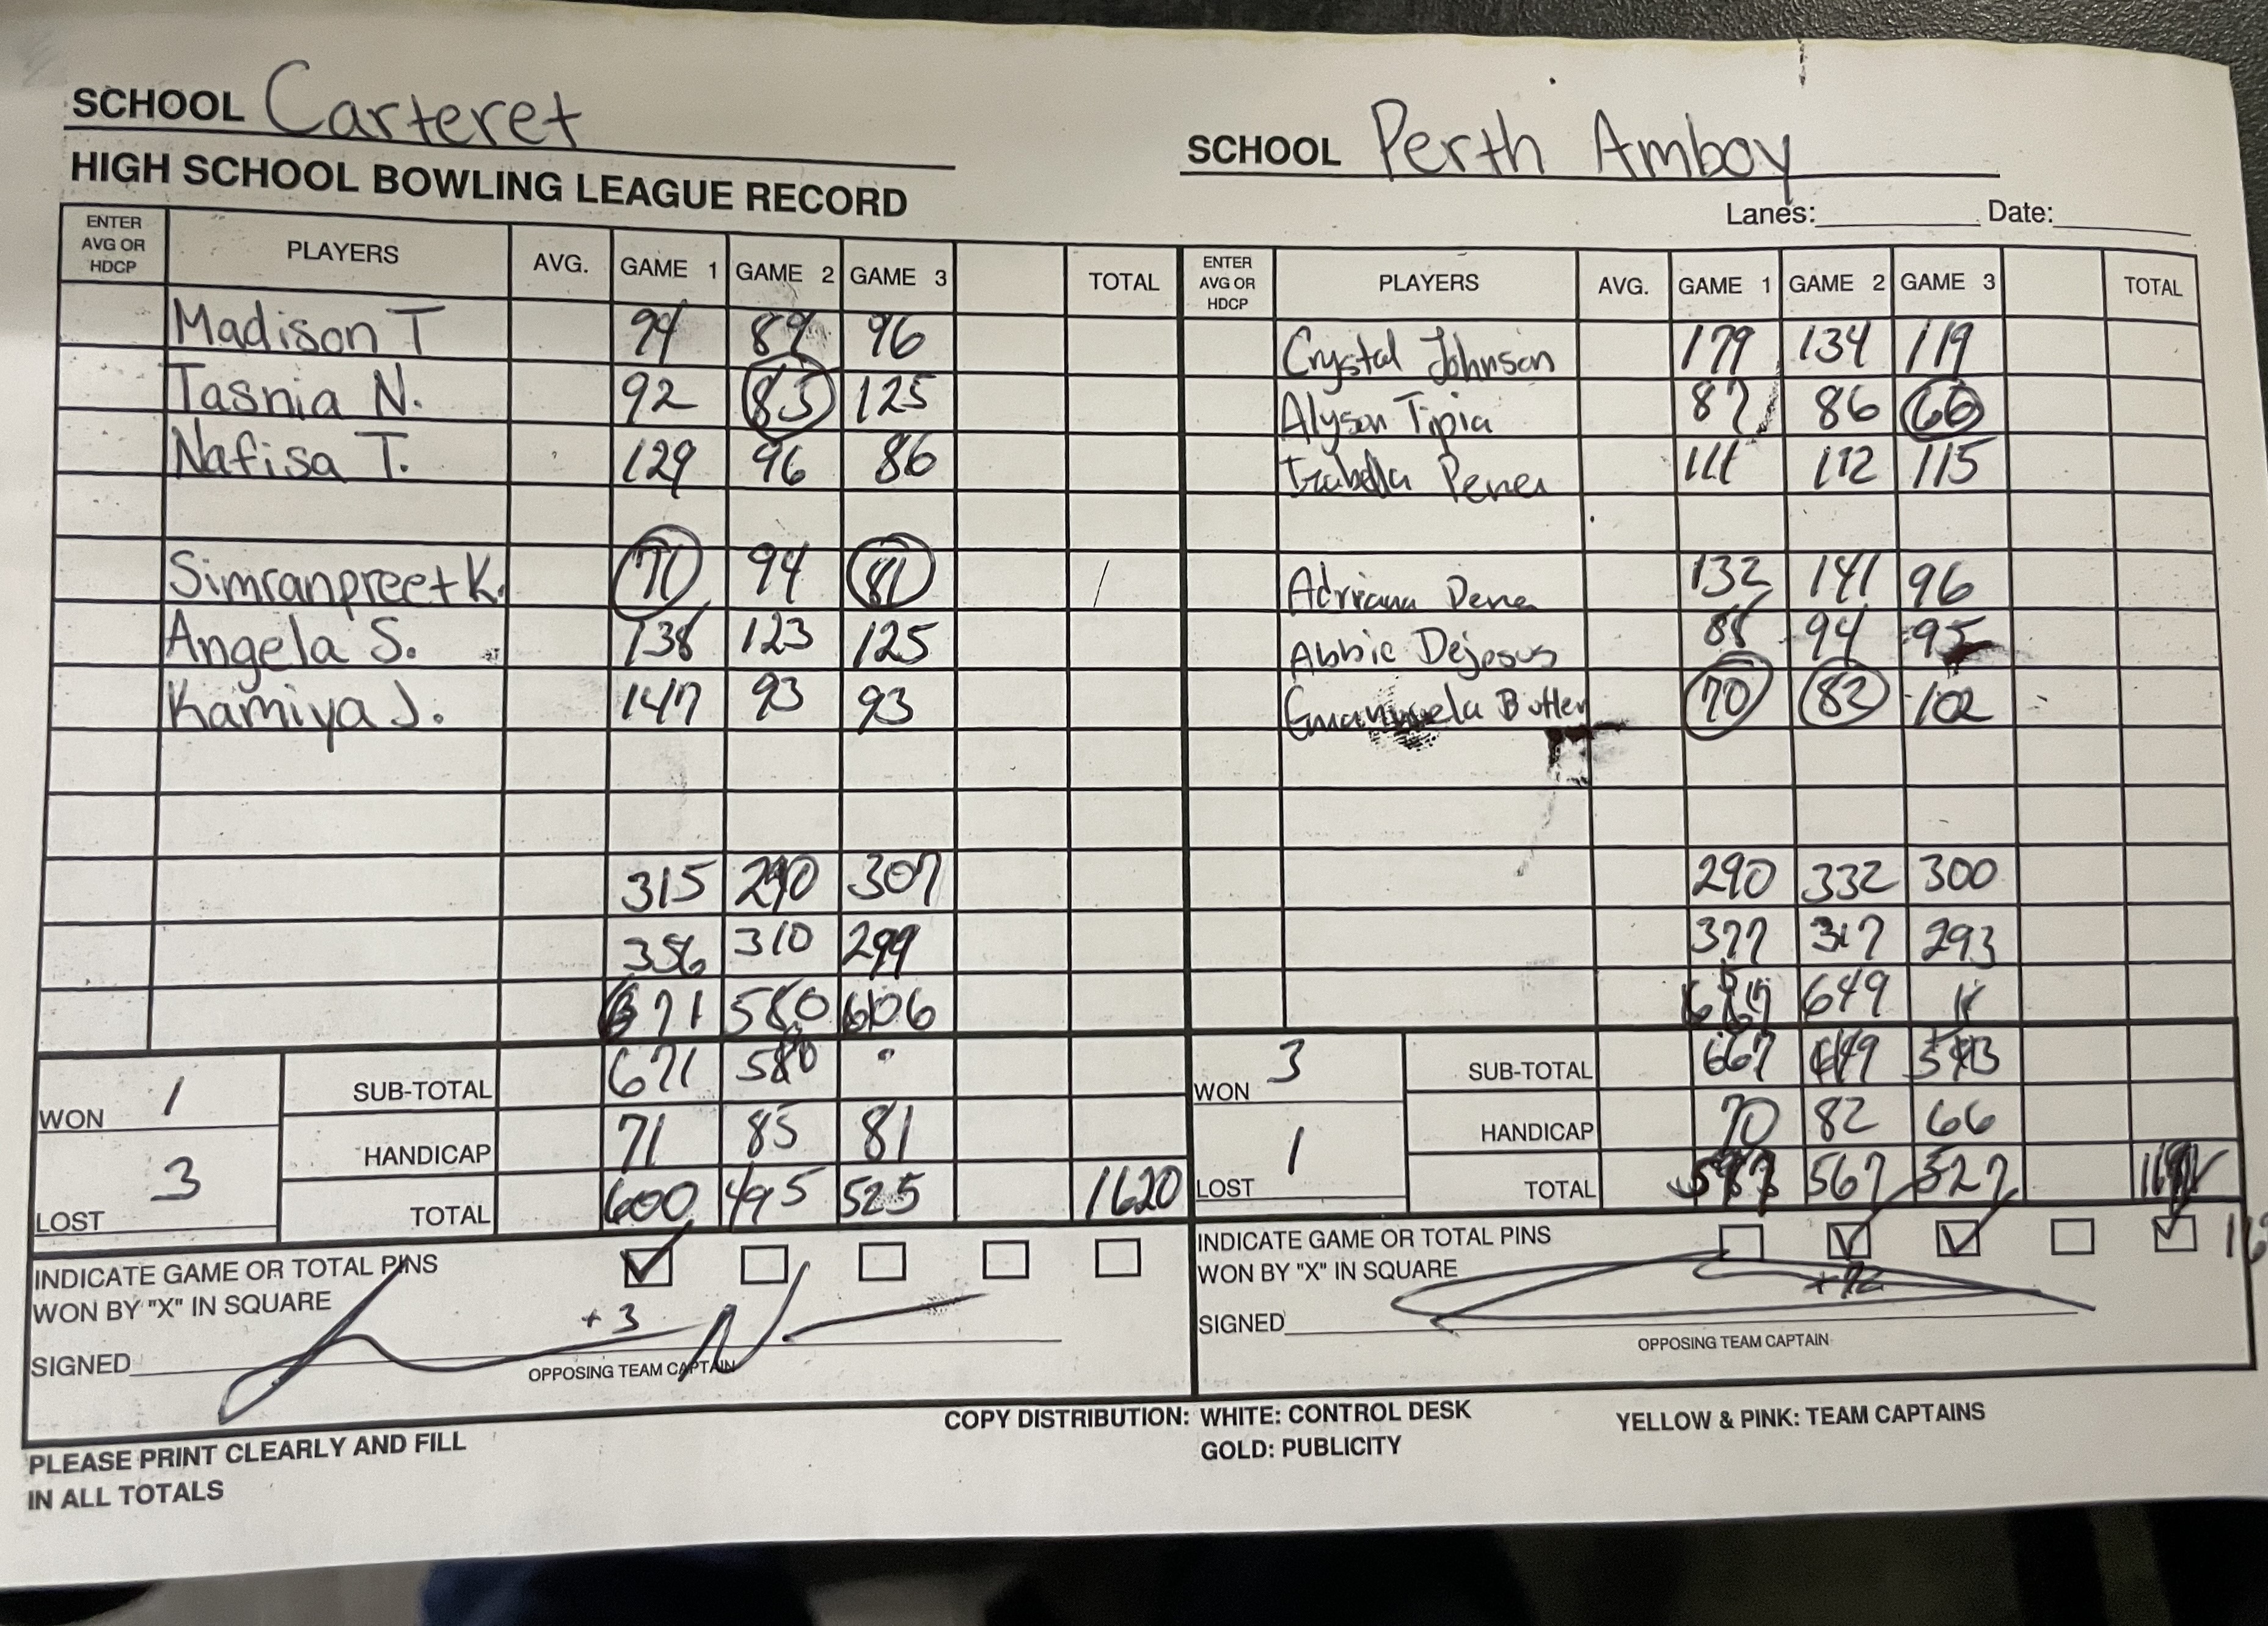 SCHOOL Carteret
SCHOOL Perth Amboy
HIGH SCHOOL BOWLING LEAGUE RECORD
Lanes: Date:
ENTER AVG OR HDCP PLAYERS AVG. GAME 1 GAME 2 GAME 3 TOTAL ENTER AVG OR HDCP PLAYERS AVG. GAME 1 GAME 2 GAME 3 TOTAL
Madison T 94 89 96 Crystal Johnson 179 134 119
Tasnia N. 92 85 125 Alyson Tipia 87 86 66
Nafisa T. 129 96 86 Izabella Perez 111 112 115
Simranpreet K. 71 94 81 Adriana Pena 132 141 96
Angela S. 138 123 125 Abbie Dejesus 88 94 95
Kamiya J. 147 93 93 Butler 70 82 102
315 290 307 290 332 300
356 310 299 377 317 293
671 580 606 649
WON 1 SUB-TOTAL 671 580 WON 3 SUB-TOTAL 667 649
HANDICAP 71 85 81 HANDICAP 70 82 66
LOST 3 TOTAL 600 495 525 1620 LOST 1 TOTAL 567 527
INDICATE GAME OR TOTAL PINS
WON BY "X" IN SQUARE
+3
SIGNED
OPPOSING TEAM CAPTAIN
INDICATE GAME OR TOTAL PINS
WON BY "X" IN SQUARE
+72
SIGNED
OPPOSING TEAM CAPTAIN
PLEASE PRINT CLEARLY AND FILL
IN ALL TOTALS
COPY DISTRIBUTION: WHITE: CONTROL DESK
GOLD: PUBLICITY
YELLOW & PINK: TEAM CAPTAINS